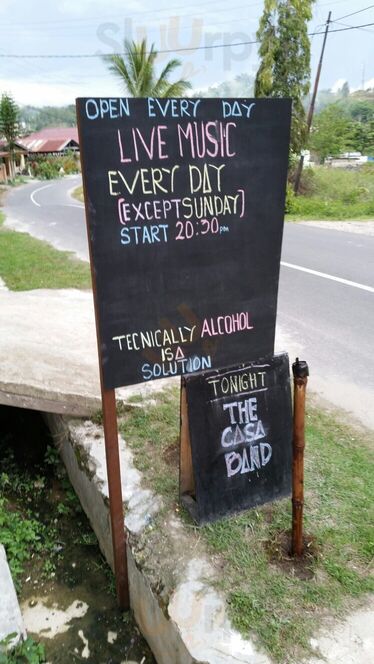 Slurrp
OPEN EVERY DAY
LIVE MUSIC
EVERY DAY
(EXCEPT SUNDAY)
START 20:30pm
TECNICALLY ALCOHOL
IS A
SOLUTION
TONIGHT
THE
CASA
BAND